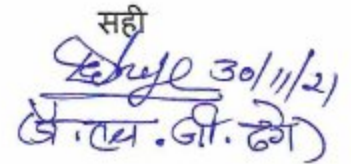 सही
30/11/21
(जे. एस. जी. ढगे)